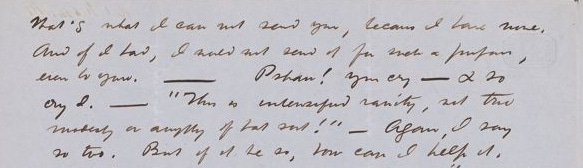 That's what I can not send you, because I have none.
And if I had, I would not send it for such a purpose,
even to you. —— Pshaw! you cry — & so
cry I. — "This is intensified vanity, not true
modesty or anything of that sort!" — Again, I say
so too. But if it be so, how can I help it.